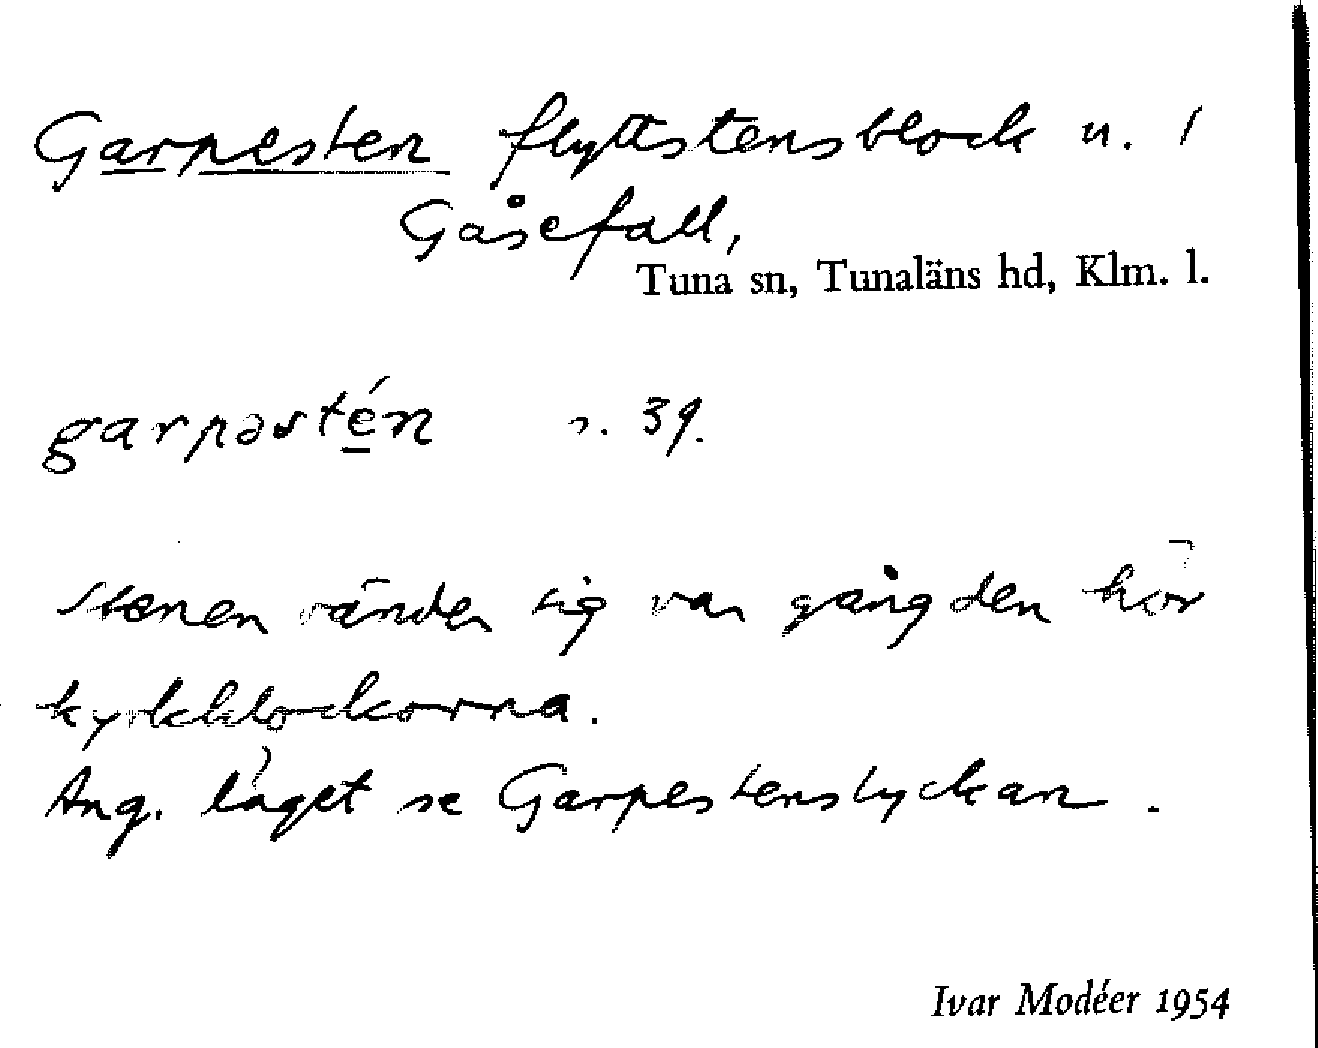 Garpesten flyttstensblock n. i
Gåsefall,
Tuna sn, Tunaläns hd, Klm. l.
garpəstén s. 39.
Stenen vänder sig var gång den hör
kyrkklockorna.
Ang. läget se Garpestenslyckan.
Ivar Modéer 1954